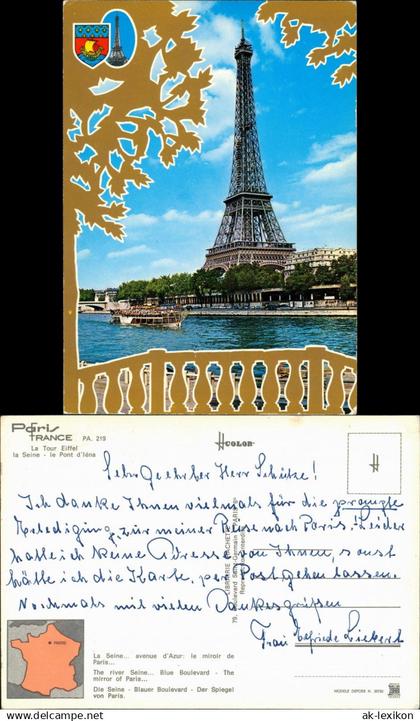 Paris
FRANCE PA. 219
La Tour Eiffel
la Seine - le Pont d'Iéna
COLOR
Sehr Geehrter Herr Schütze!
Ich danke Ihnen vielmals für die prompte
Erledigung, zur meiner Reise nach Paris. Leider
hatte ich keine Adresse von Ihnen, sonst
hätte ich die Karte, per Post gehen lassen.
Nochmals mit vielen Dankesgrüßen
Frau
PARIS
La Seine... avenue d'Azur: le miroir de
Paris...
The river Seine... Blue Boulevard - The
mirror of Paris...
Die Seine - Blauer Boulevard - Der Spiegel
von Paris.
79, Boulevard Saint-Germain
MODELE DEPOSE
ak-lexikon